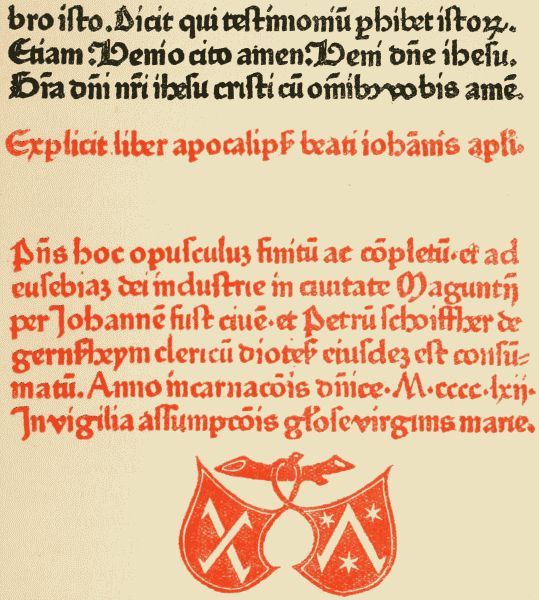 bro isto. Dicit qui testimoniū ꝑhibet istoꝝ.
Etiam: Venio cito amen: Veni dn̄e ihesu.
Gr̄a dn̄i nr̄i ihesu cristi cū om̄ibꝫ vobis amē.
Explicit liber apocalipẜ beati ioħānis apl̄i.
Pn̄s hoc opusculuꝫ finitū ac cōpletū. et ad
eusebiaꝫ dei industrie in ciuitate Maguntij
per Johannē fust ciuē. et Petrū schoiffher de
gernſheym clericū dioteẜ eiusdeꝫ est consū-
matū. Anno incarnacōis dn̄ice. M. cccc. lxij.
In vigilia assumpcōis gl̄ose virginis marie.